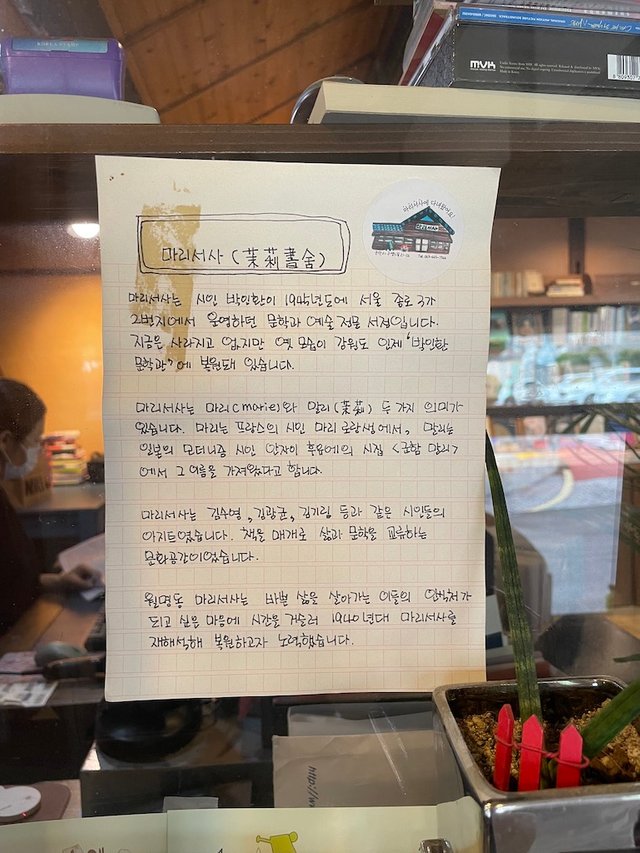 mvk
마리서사에 다녀왔어요!
마리서사 (茉莉書舍)
마리서사는 시인 박인환이 1945년도에 서울 종로 3가
2번지에서 운영하던 문학과 예술 전문 서점입니다.
지금은 사라지고 없지만 옛 모습이 강원도 인제 '박인환
문학관'에 복원돼 있습니다.
마리서사는 마리(marie)와 말리(茉莉) 두 가지 의미가
있습니다. 마리는 프랑스의 시인 마리 로랑생에서, 말리는
일본의 모더니즘 시인 안자이 후유에의 시집 <군함 말리>
에서 그 이름을 가져왔다고 합니다.
마리서사는 김수영, 김광균, 김기림 등과 같은 시인들의
아지트였습니다. 책을 매개로 삶과 문학을 교류하는
문화공간이었습니다.
월명동 마리서사는 바쁜 삶을 살아가는 이들의 안식처가
되고 싶은 마음에 시간을 거슬러 1940년대 마리서사를
재해석해 복원하고자 노력했습니다.
http://